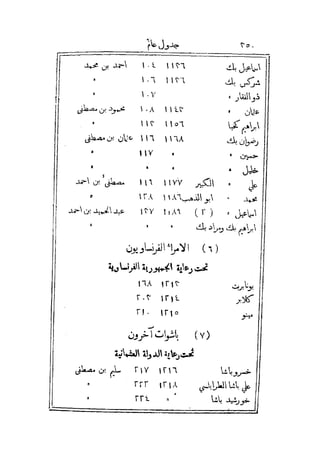 ٢٥٠ جدول عام
اسماعيل بك ١١٣٦ ١٠٤ احمد بن محمد
شركس بك ١١٣٦ ١٠٦ "
ذو الفقار " ١٠٧ "
عثمان " ١١٤٣ ١٠٨ محمود بن مصطفى
ابراهيم كخيا ١١٥٦ ١١٣ "
رضوان بك ١١٦٨ ١١٦ عثمان بن مصطفى
حسين " " ١١٧ "
خليل " " " "
علي " الكبير ١١٧٧ ١١٦ مصطفى بن احمد
محمد " ابو الذهب ١١٨٦ ١٢٨ "
اسماعيل " (٢) ١١٨٦ ١٣٧ عبد الحميد بن احمد
ابراهيم بك ومراد بك " " "
(٦) الامراء الفرنساويون
تحت رعاية الجمهورية الفرنساوية
بونابرت ١٢١٣ ١٦٨
كلابر ١٢١٤ ٢٠٣
مينو ١٢١٥ ٢١٠
(٧) باشوات آخرون
تحت رعاية الدولة العثمانية
خسرو باشا ١٢١٦ ٢١٧ سليم بن مصطفى
علي باشا الطرابلسي ١٢١٨ ٢٢٣ "
خورشيد باشا " ٢٢٤ "